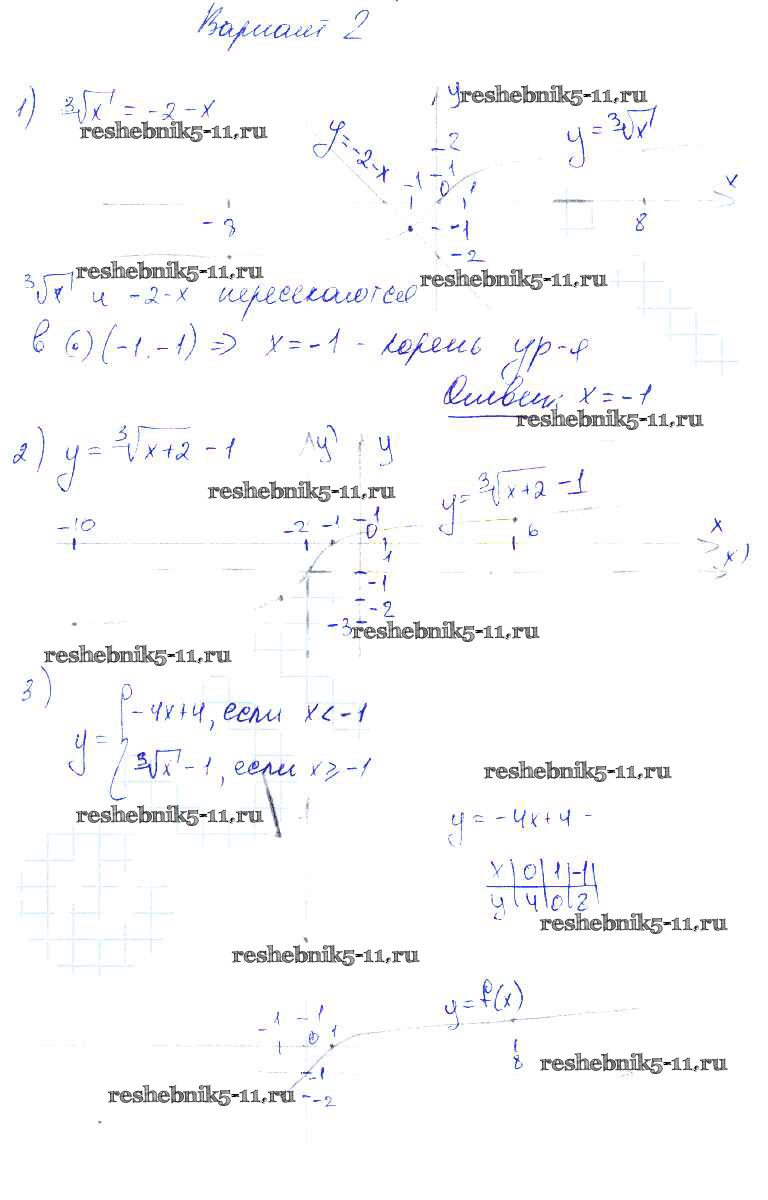 Вариант 2
1) ∛x = -2-x
reshebnik5-11.ru
y
reshebnik5-11.ru
y = -2-x
y = ∛x
-2
-1
-1 0 1
x
-8
8
-1
-2
reshebnik5-11.ru
reshebnik5-11.ru
∛x и -2-x пересекаются
в (•) (-1.-1) => x = -1 - корень ур-я
Ответ: x = -1
reshebnik5-11.ru
2) y = ∛(x+2) - 1
y' y
reshebnik5-11.ru
y = ∛(x+2) - 1
-10
-2 -1
-1
0
1
6
x
x'
-1
-2
-3
reshebnik5-11.ru
reshebnik5-11.ru
3)
y = { -4x+4, если x < -1
∛x - 1, если x ≥ -1
reshebnik5-11.ru
reshebnik5-11.ru
y = -4x+4 -
x | 0 | 1 | -1
y | 4 | 0 | 2
reshebnik5-11.ru
reshebnik5-11.ru
y = f(x)
-1
-1
0 1
8
-1
-2
reshebnik5-11.ru
reshebnik5-11.ru